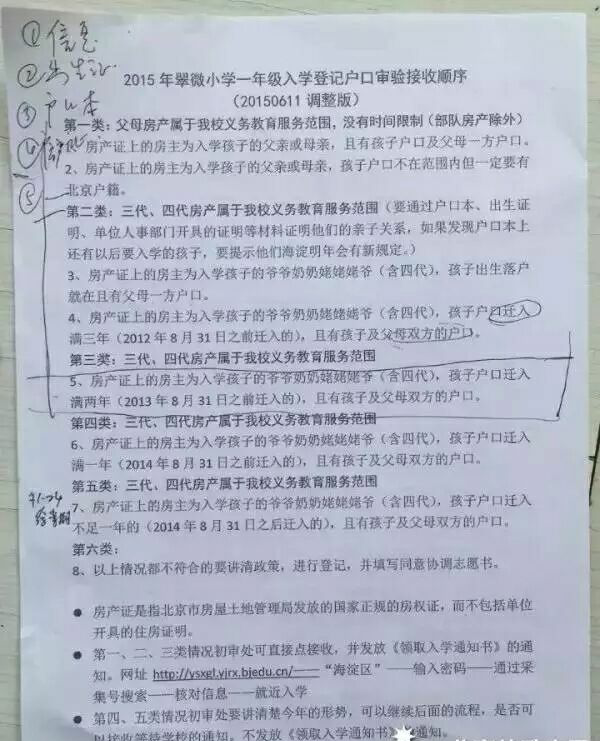 ① 信息
② 出生证
③ 户口本
④
⑤
2015 年翠微小学一年级入学登记户口审验接收顺序
（20150611 调整版）
第一类：父母房产属于我校义务教育服务范围，没有时间限制（部队房产除外）
房产证上的房主为入学孩子的父亲或母亲，且有孩子户口及父母一方户口。
2、房产证上的房主为入学孩子的父亲或母亲，孩子户口不在范围内但一定要有
北京户籍。
第二类：三代、四代房产属于我校义务教育服务范围（要通过户口本、出生证
明、单位人事部门开具的证明等材料证明他们的亲子关系，如果发现户口本上
还有以后要入学的孩子，要提示他们海淀明年会有新规定。）
3、房产证上的房主为入学孩子的爷爷奶奶姥姥姥爷（含四代），孩子出生落户
就在且有父母一方户口。
4、房产证上的房主为入学孩子的爷爷奶奶姥姥姥爷（含四代），孩子户口迁入
满三年（2012 年 8 月 31 日之前迁入的），且有孩子及父母双方的户口。
第三类：三代、四代房产属于我校义务教育服务范围
5、房产证上的房主为入学孩子的爷爷奶奶姥姥姥爷（含四代），孩子户口迁入
满两年（2013 年 8 月 31 日之前迁入的），且有孩子及父母双方的户口。
第四类：三代、四代房产属于我校义务教育服务范围
6、房产证上的房主为入学孩子的爷爷奶奶姥姥姥爷（含四代），孩子户口迁入
满一年（2014 年 8 月 31 日之前迁入的），且有孩子及父母双方的户口。
第五类：三代、四代房产属于我校义务教育服务范围
7、房产证上的房主为入学孩子的爷爷奶奶姥姥姥爷（含四代），孩子户口迁入
不足一年的（2014 年 8 月 31 日之后迁入的），且有孩子及父母双方的户口。
第六类：
8、以上情况都不符合的要讲清政策，进行登记，并填写同意协调志愿书。
● 房产证是指北京市房屋土地管理局发放的国家正规的房权证，而不包括单位
开具的住房证明。
● 第一、二、三类情况初审处可直接点接收，并发放《领取入学通知书》的通
知。网址 http://ysxgl.yjrx.bjedu.cn/——“海淀区”——输入密码——通过采
集号搜索——核对信息——就近入学
● 第四、五类情况初审处要讲清楚今年的形势，可以继续后面的流程，是否可
以接收等待学校的通知。不发放《领取入学通知书》的通知。